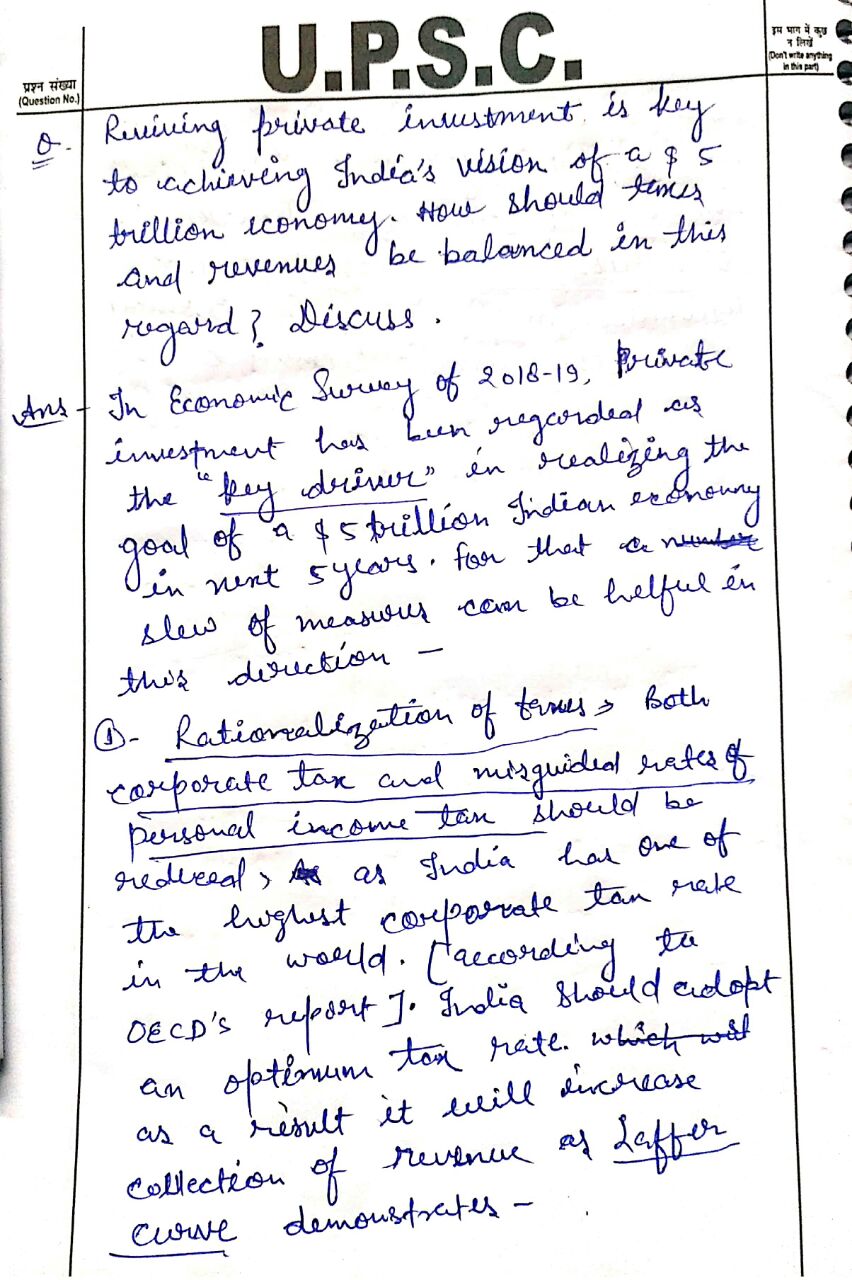 U.P.S.C.
प्रश्न संख्या
(Question No.)
इस भाग में कुछ
न लिखें
(Don't write anything
in this part)
Q. Reviving private investment is key
to achieving India's vision of a $ 5
trillion economy. How should taxes
and revenues be balanced in this
regard? Discuss.
Ans - In Economic Survey of 2018-19, Private
investment has been regarded as
the "key driver" in realizing the
goal of a $ 5 trillion Indian economy
in next 5 years. for that a number
slew of measures can be helful in
this direction -
① - Rationalization of taxes → Both
corporate tax and misguided rates of
personal income tax should be
reduced, as India has one of
the highest corporate tax rate
in the world. [according to
OECD's report]. India should adopt
an optimum tax rate. which will
as a result it will increase
collection of revenue as Laffer
curve demonstrates -